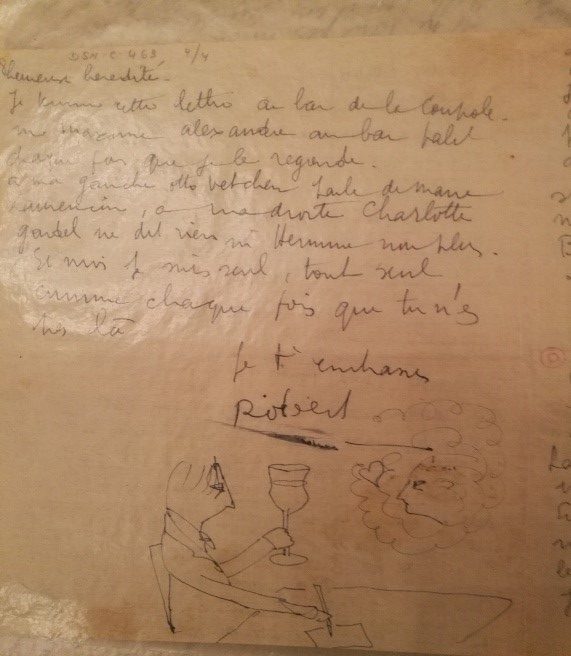 DSN-C-463
hérédité.
Je termine cette lettre au bar de la Coupole.
maxime alexandre au bar palit
chaque fois que je le regarde.
a ma gauche otto parle de marie
Laurencin, a ma droite Charlotte
gardel ne dit rien ni Hermine non plus.
Et moi je suis seul, tout seul
comme chaque fois que tu n'es
pas là
Je t'embrasse
Robert